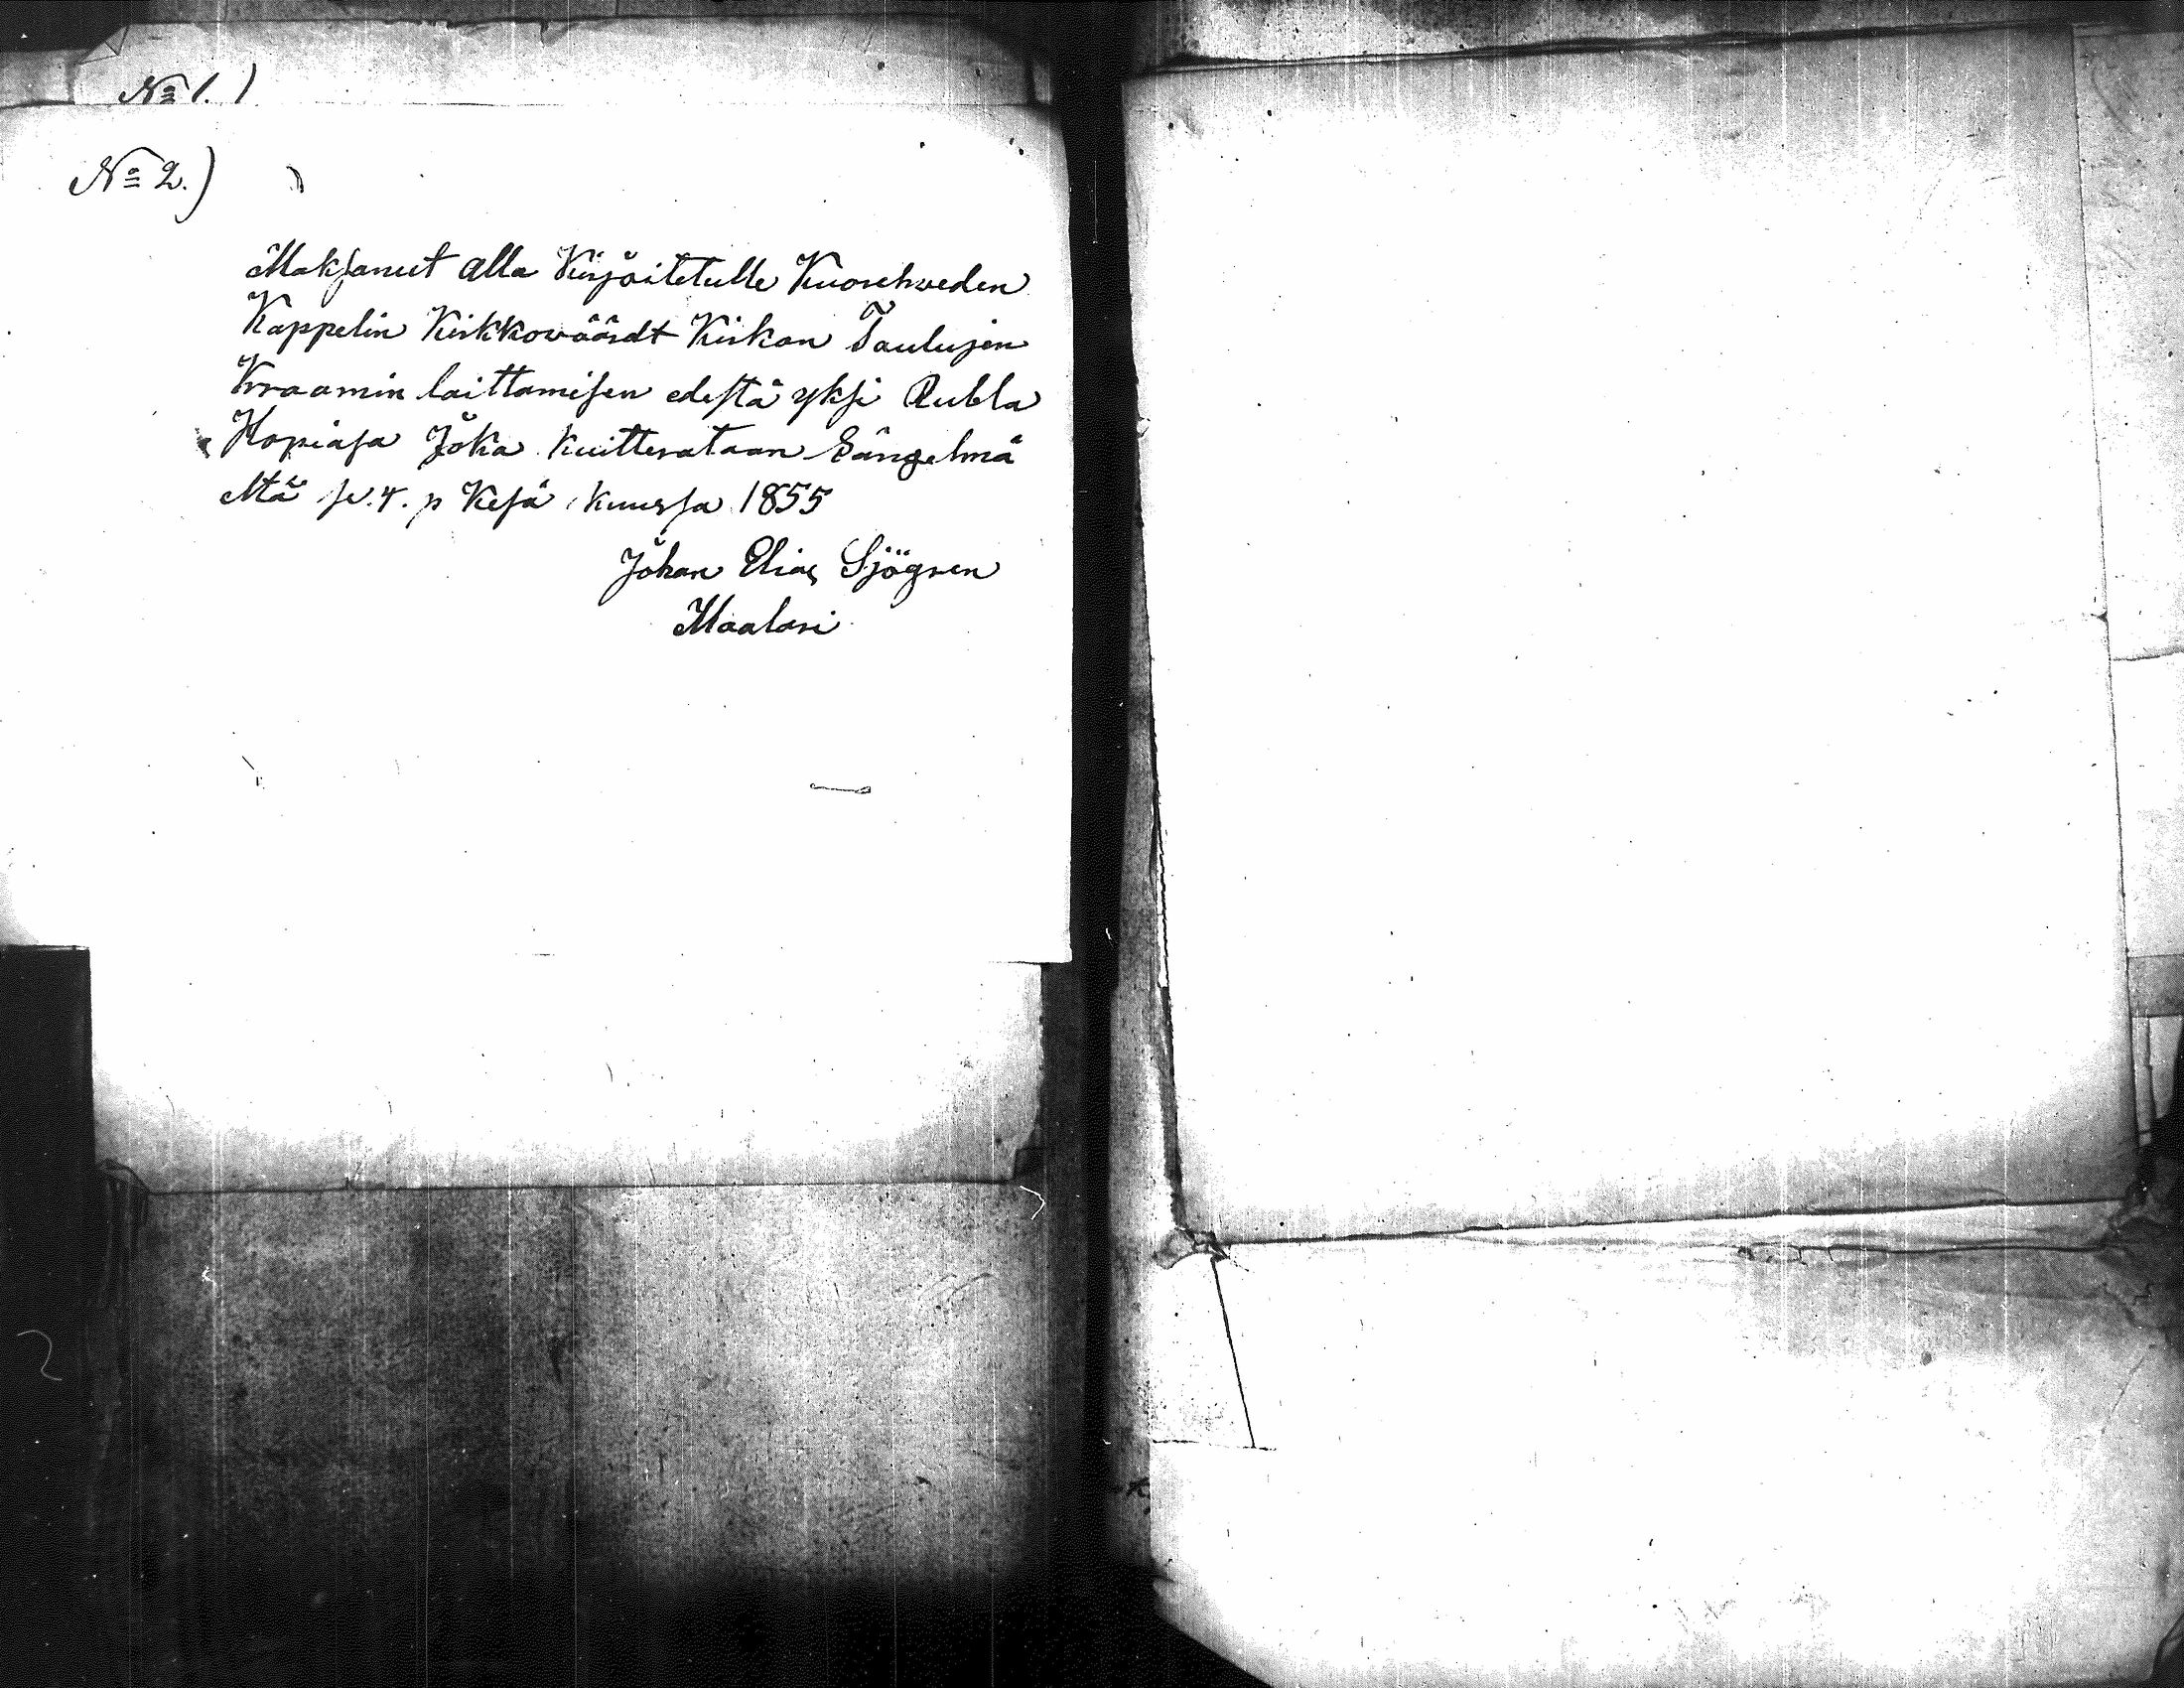 № 1.)
№ 2.)
Maksanut alla Kirjoitetulle Kuorehweden
Kappelin Kirkkowäärdt Kirkon Taulujen
Kraamin laittamisen edestä yksi Rubla
Hopiasa Joka kuitterataan Längelmä
eltä se. 4. p Kesä kuussa 1855
Johan Elias Sjögren
Maalari